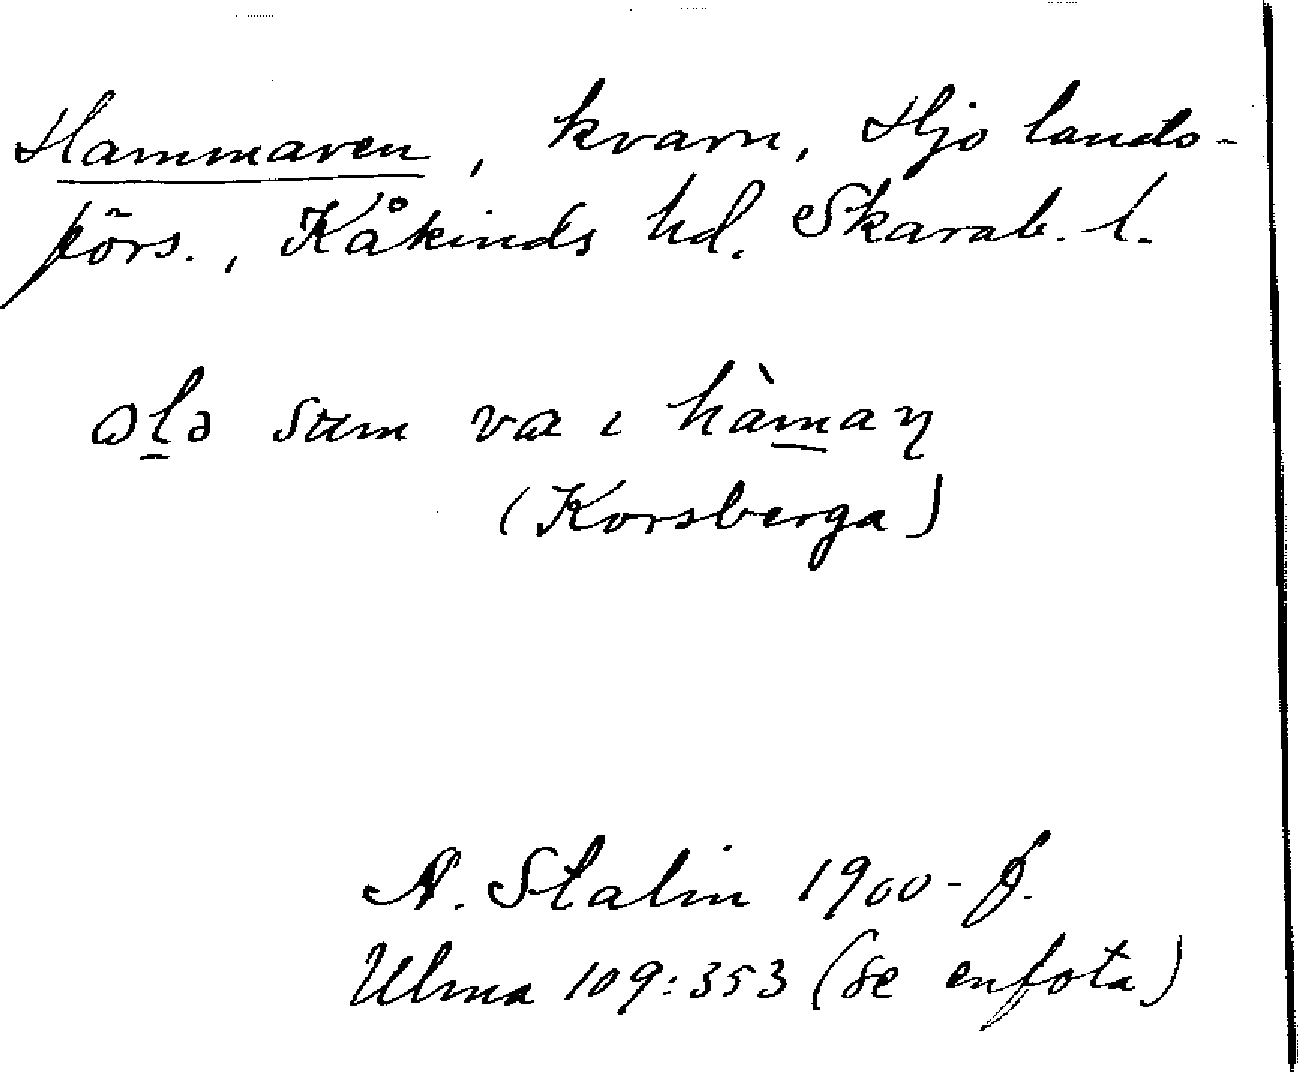 Hammaren, kvarn, Hjo lands-
förs., Kåkinds hd. Skarab. l.
va ı hàmaɳ
(Korsberga)
N. Stalin 1900-t.
Ulma 109:353 (se enfota)